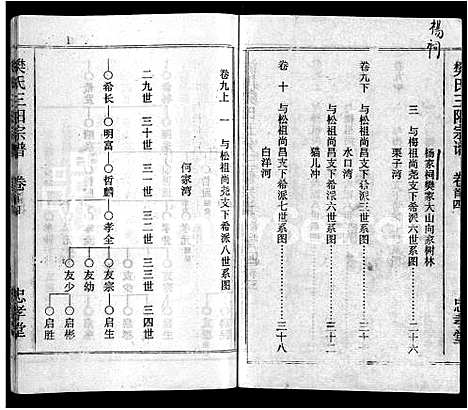 杨祠
樊氏三阳宗谱 卷首四 忠孝堂
杨家祠樊家大山向家树林
三 与梅祖尚尧支下希派六世系图
栗子河
卷九下 与松祖尚昌支下希派六世系图 三十一
水口湾
与松祖尚昌支下希派六世系图 三十二
猫儿冲
卷十 与松祖尚昌支下希派六世系图 三十八
白洋河
卷九上 一 与松祖尚尧支下希派八世系图
何家湾
二九世 三十世 三一世 三二世 三三世 三四世
希长 明富 哲 孝全 友宗 启生
友幼 启彬
友少 启胜
樊氏三阳宗谱 卷首四 忠孝堂